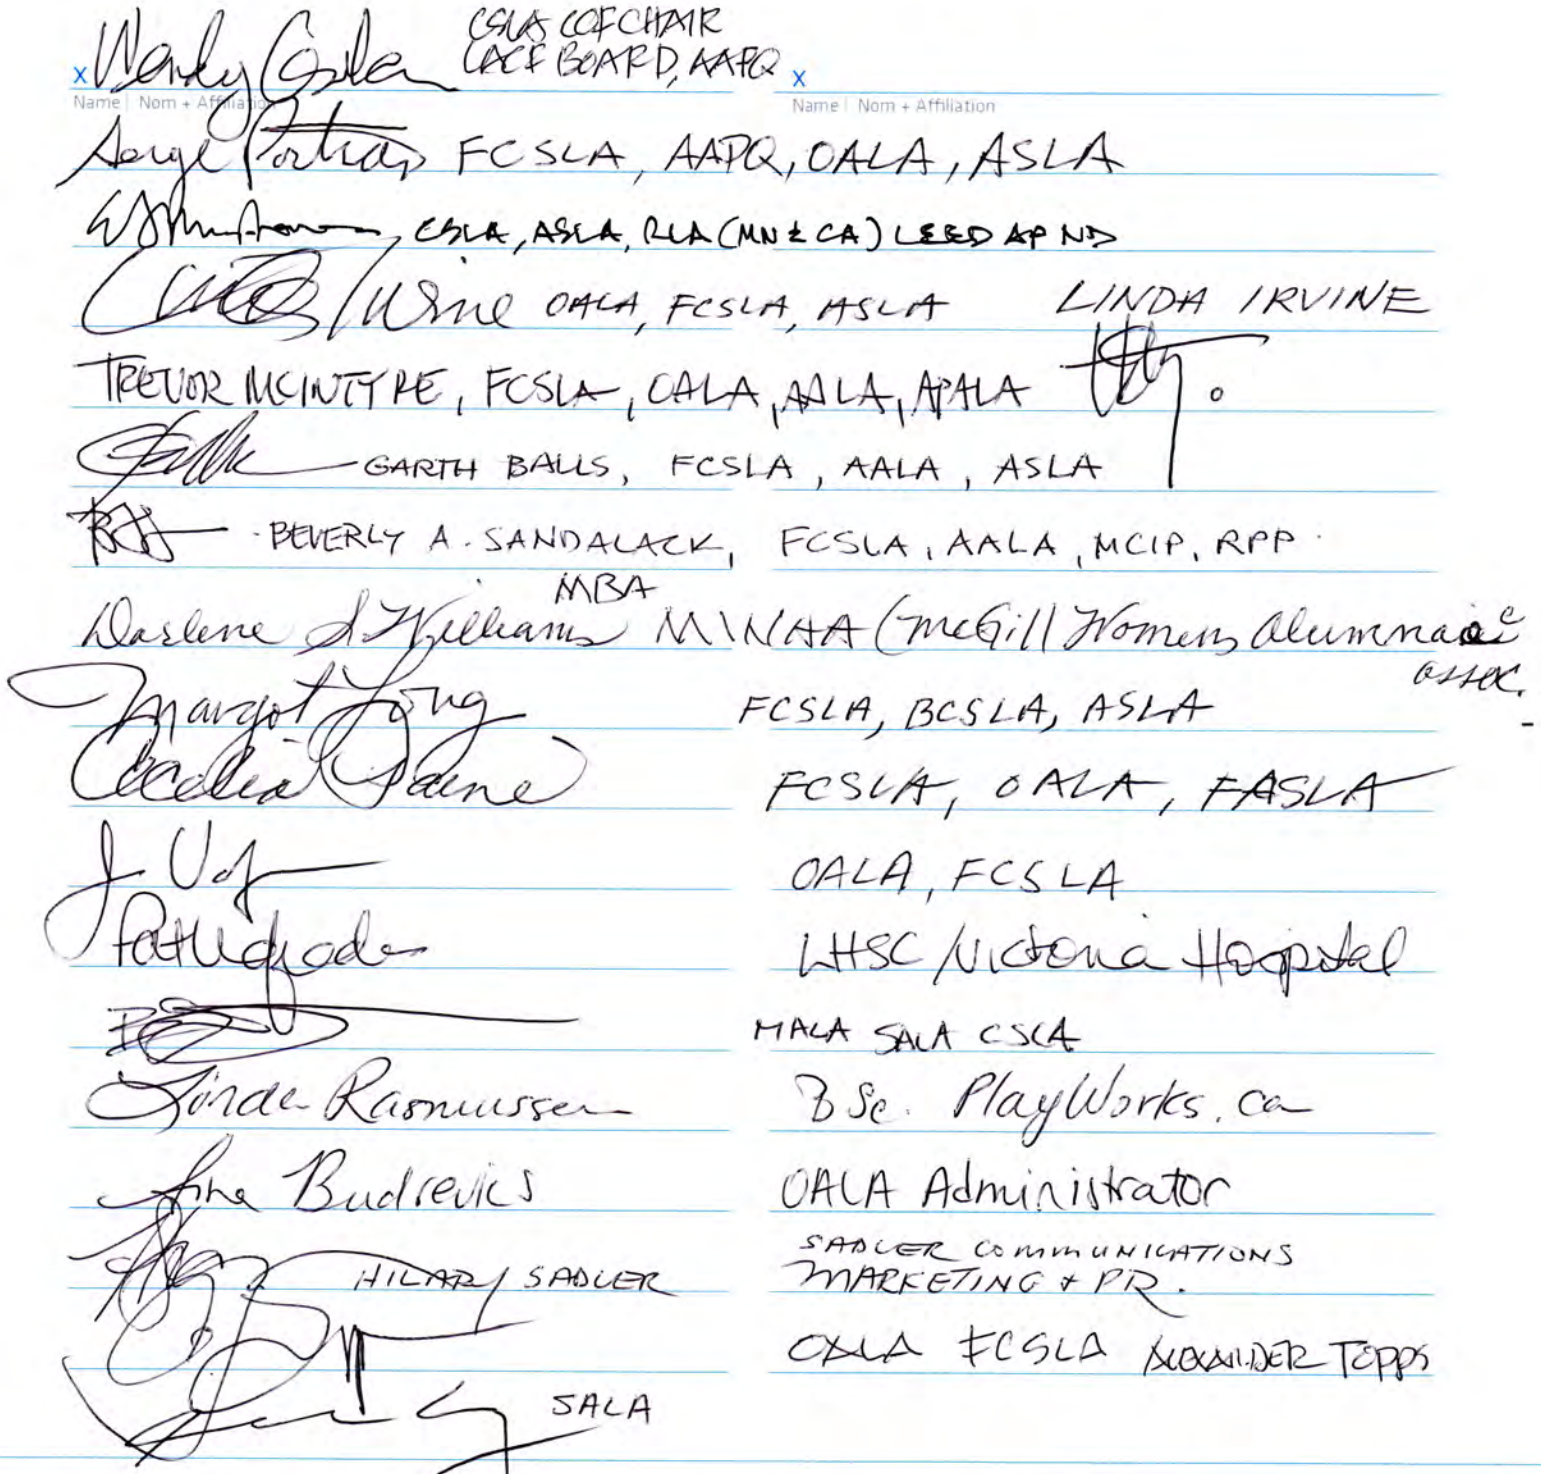 CSLA COF CHAIR
x Wendy LACF BOARD, AAPQ x
Name | Nom + Affiliation Name | Nom + Affiliation
FCSLA, AAPQ, OALA, ASLA
CSLA, ASLA, RLA (MN & CA) LEED AP ND
Irvine OALA, FCSLA, ASLA LINDA IRVINE
TREVOR MCINTYRE, FCSLA, OALA, AALA, APALA
GARTH BALLS, FCSLA, AALA, ASLA
BEVERLY A. SANDALACK, FCSLA, AALA, MCIP, RPP.
MBA
Darlene S Williams MWAA (McGill Womens Alumnae
assoc.
Margot Long FCSLA, BCSLA, ASLA
Cecelia Paine FCSLA, OALA, FASLA
OALA, FCSLA
LHSC / Victoria Hospital
MALA SALA CSLA
Linda Rasmussen BSc. PlayWorks.ca
Budrevics OALA Administrator
SADLER COMMUNICATIONS
HILARY SADLER MARKETING + PR.
OALA FCSLA ALEXANDER TOPPS
SALA